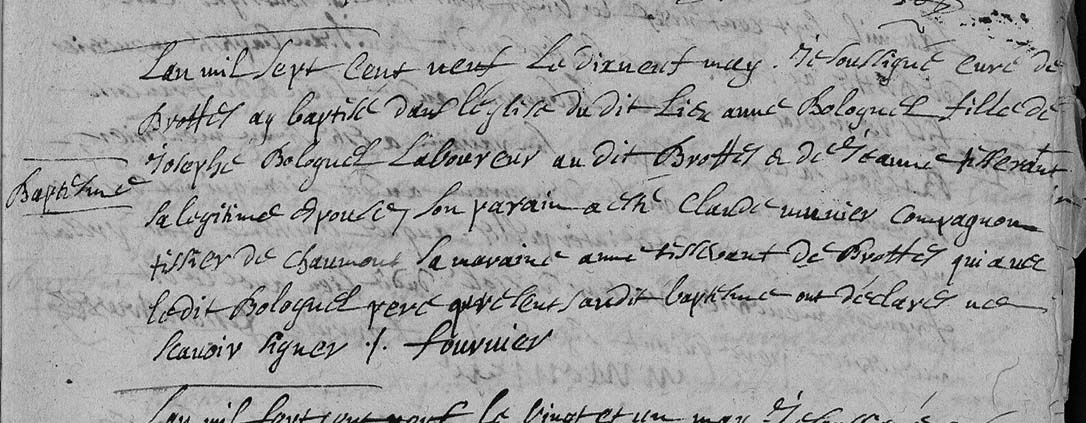 Lan mil sept Cent neuf Le dixneuf may. Je soussigné curé de
Brottes ay baptisé dans l'église du dit Lieu anne Bologuel fille de
Baptesme
Josephe Bologuel Laboureur au dit Brottes & de Jeanne tisserant
sa legitime Epouse, son parain a eté Claude munier compagnon
tissier de chaumont sa maraine anne tisserant de Brottes qui avec
ledit Bologuel pere present audit baptesme ont déclarés ne
scavoir signer ./. fournier
Lan mil sept cent neuf le vingt et un may Je